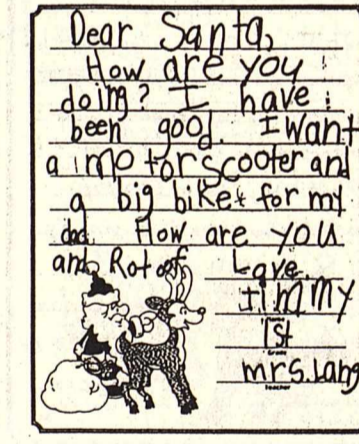 Dear Santa,
How are you
doing? I have
been good. I want
a motorscooter and
a big biket for my
dad. How are you
and Rotoff
Love
Jimmy
Name
1st
Grade
mrs. Lang
Teacher